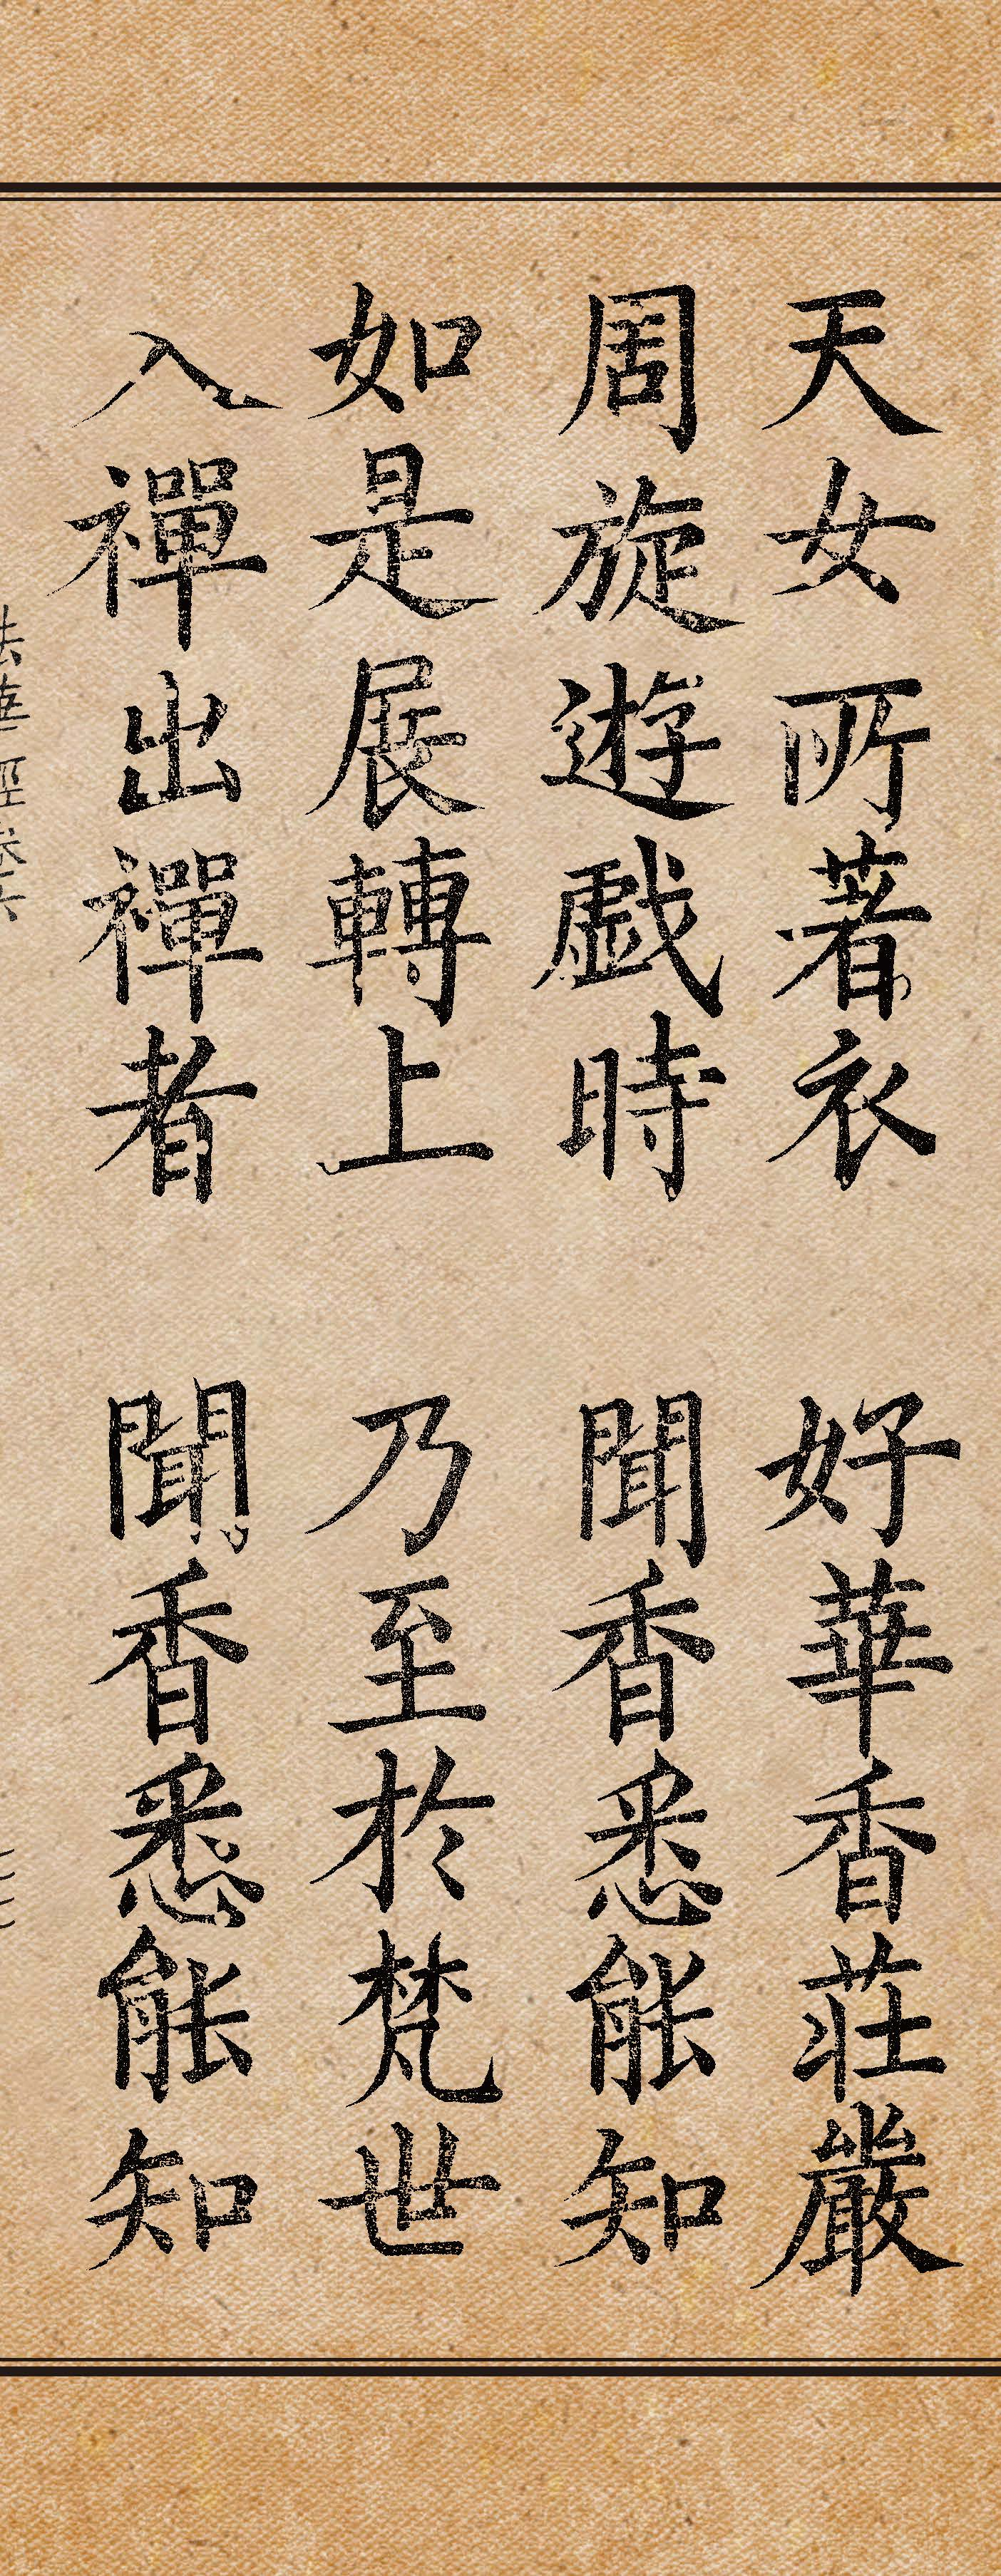 天女所著衣　好華香莊嚴
周旋遊戯時　聞香悉能知
如是展轉上　乃至於梵世
入禪出禪者　聞香悉能知
法華經卷六